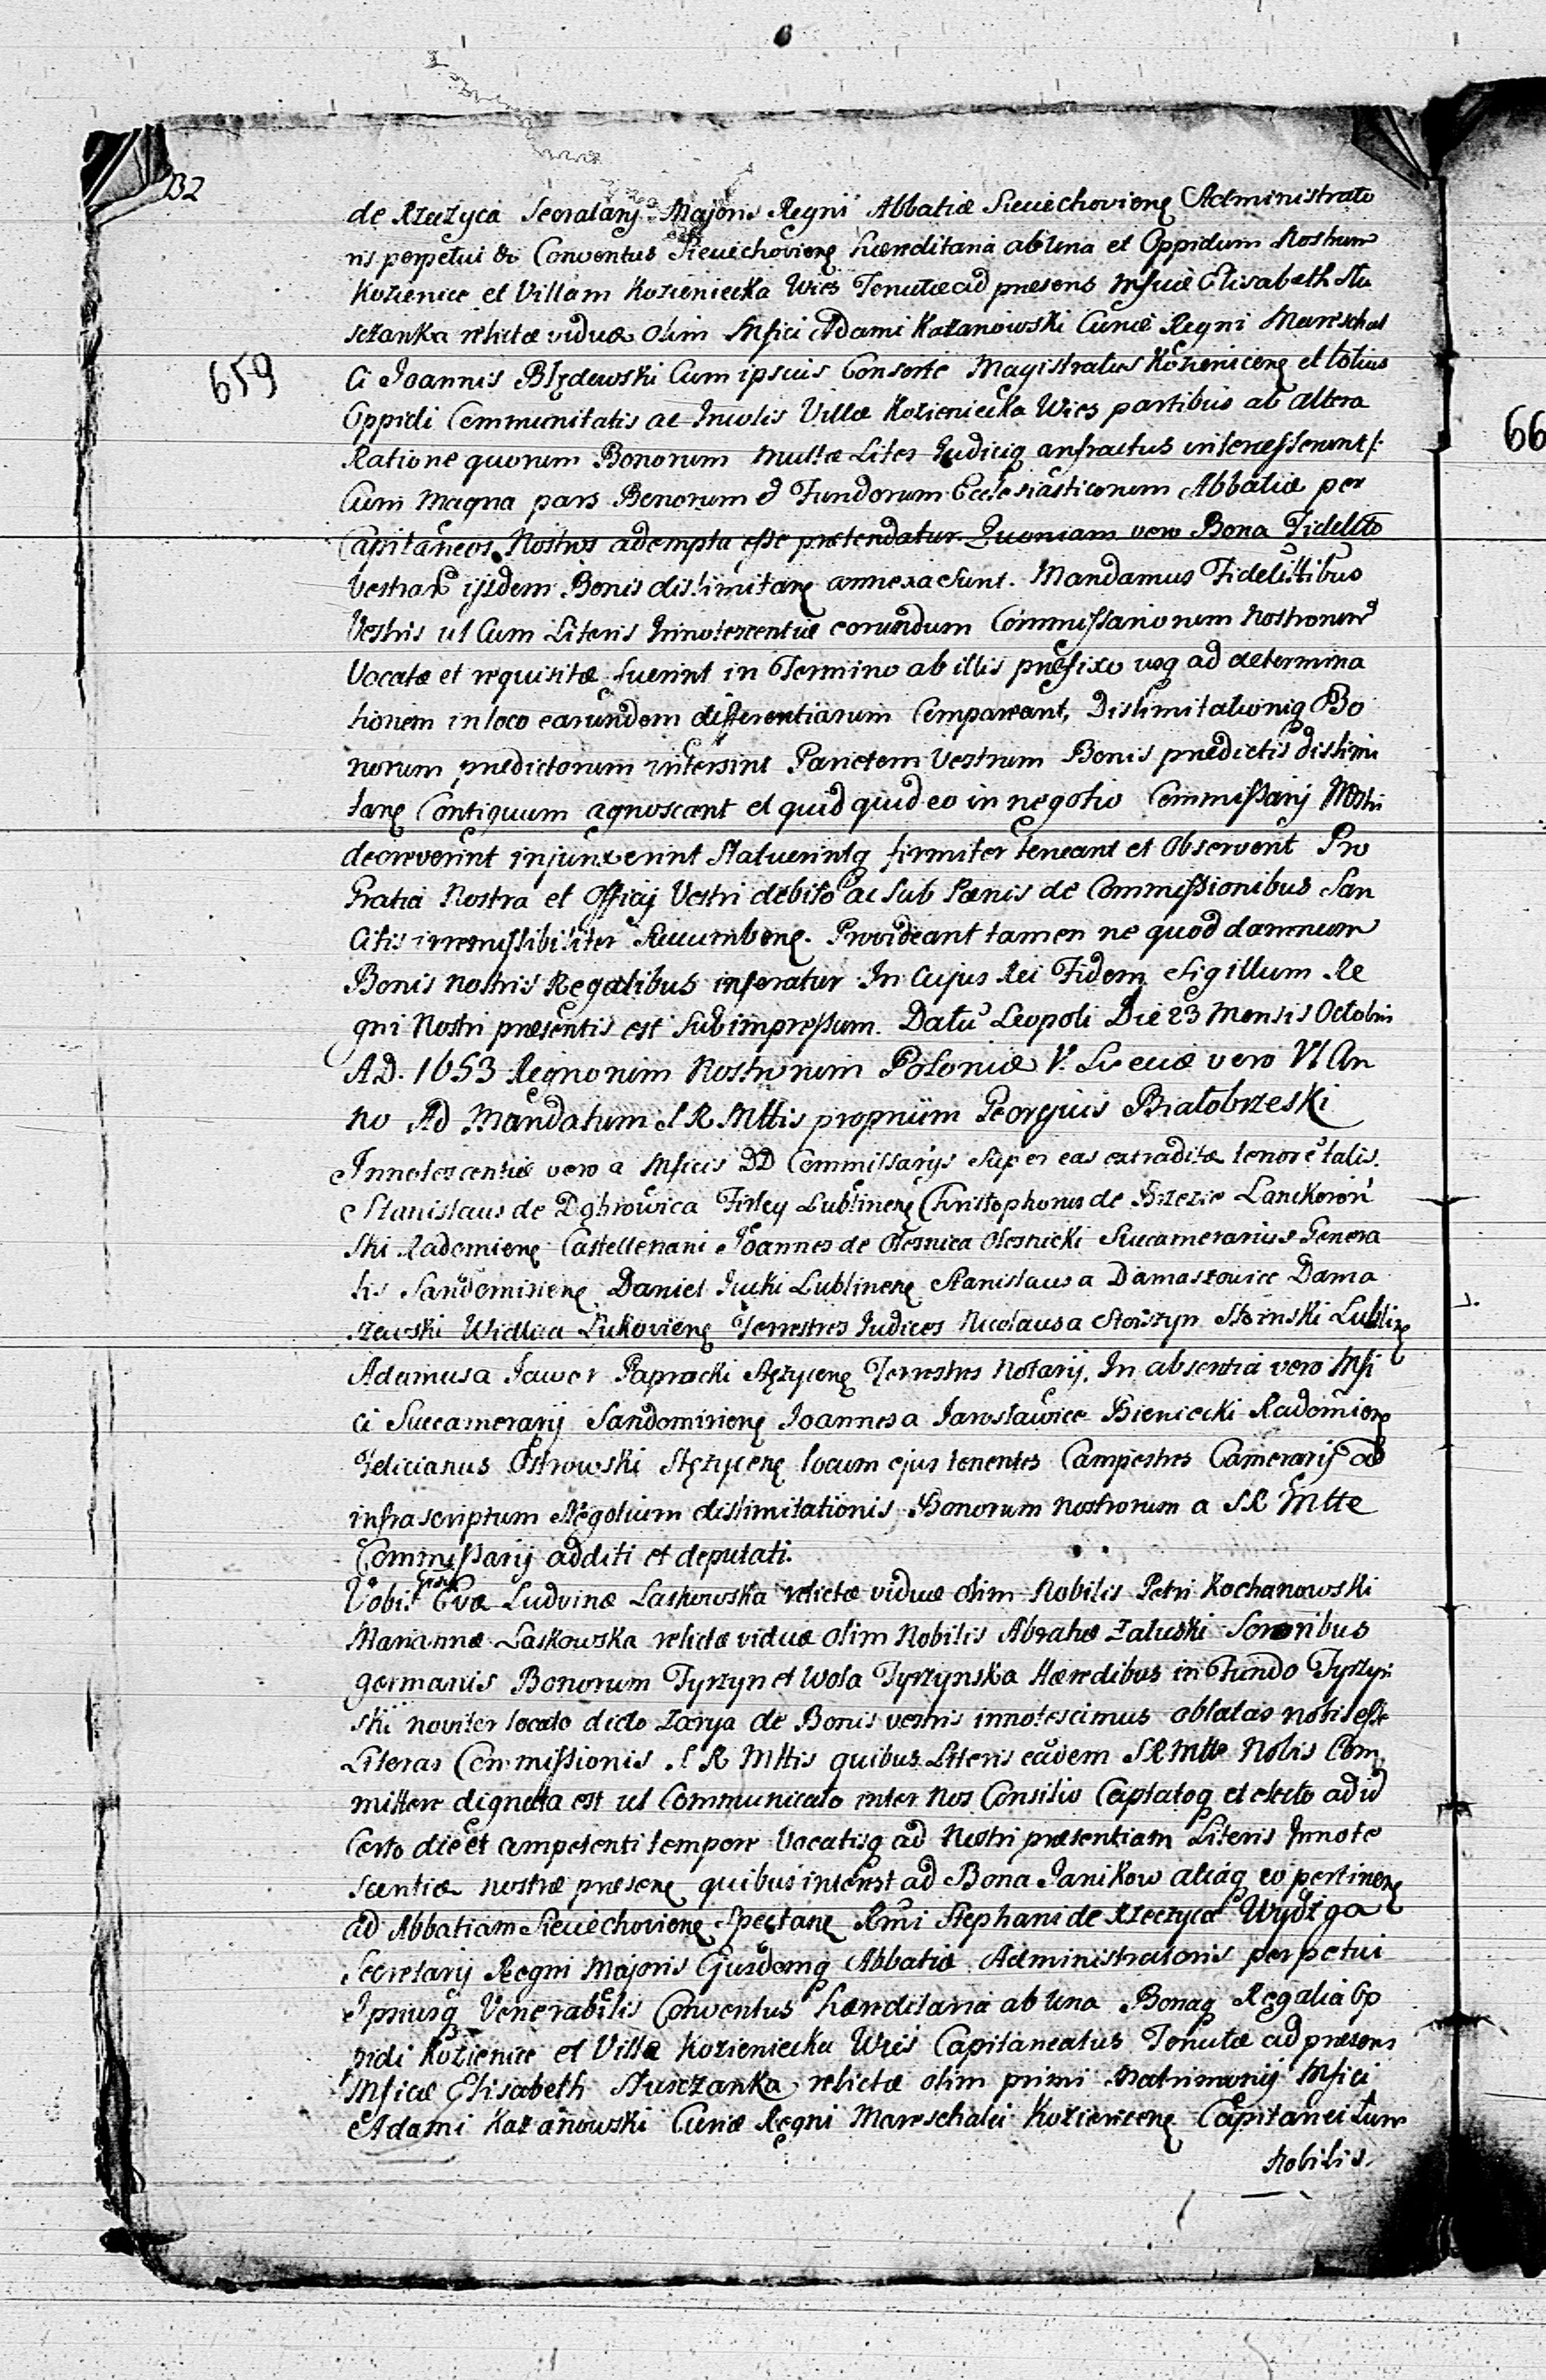 32
de Rzeczyca Secretarij Majoris Regni Abbatiæ Sieciechoviens Administrato
ris perpetui & Conventus Sieciechoviens hæreditaria ab una et Oppidum Nostrum
Kozienice et Villam Kozieniecka Wies Tenutæ ad præsens Mficæ Elisabeth Słu
sczanka relictæ viduæ olim Mfici Adami Kazanowski Curiæ Regni Mareschal
659
ci Joannis Blędowski Cum ipsius Consorte Magistratus Kozienicens et totius
Oppidi Communitatis ac Incolis Villæ Kozieniecka Wies partibus ab altera
Ratione quorum Bonorum multæ Lites Judiciq anfractus intercesserunt
Cum magna pars Bonorum et Fundorum Ecclesiasticorum Abbatiæ per
Capitaneos Nostros adempta esse prætendatur. Quoniam vero Bona Fidelit
Vestrar ijsdem Bonis dislimitan annexa sunt. Mandamus Fidelittibus
Vestris ut Cum Literis Innotescentiæ eorundum Commissariorum Nostrorum
Vocatæ et requisitæ fuerint in Termino ab illis præfixo usq ad determina
tionem in loco earundem differentiarum Compareant, Dislimitationiq Bo
norum prædictorum intersint Parietem Vestrum Bonis prædictis dislimi
tan Contiguum agnoscant et quid quid eo in negotio Commissarij Nostri
decreverint injunxerint Statuerintq firmiter teneant et Observent Pro
Gratia Nostra et Officij Vestri debito ac sub Pænis de Commissionibus San
citis irremissibiliter Succumben. Provideant tamen ne quod damnum
Bonis Nostris Regalibus inferatur In Cujus Rei Fidem Sigillum Re
gni Nostri præsentis est Subimpressum. Datũ Leopoli Die 23 Mensis Octobris
A.D. 1653 Regnorum Nostrorum Poloniæ V. Sueciæ vero VI An
no Ad Mandatum S R Mttis proprium Georgius Białobrzeski
Innotescentiæ vero a Mficis DD Commissarijs Super eas extraditæ tenor ẽ talis.
Stanislaus de Dąbrowica Firley Lublinens Christophorus de Brzezie Lanckoroń
ski Radomiens Castellanei Joannes de Olesnica Olesnicki Succamerarius Genera
lis Sandomiriens Daniel Jucki Lublinens Stanislaus a Damaszowice Dama
szewski Widlica Łukoviens Terrestres Judices Nicolaus a Stoiszyn Stoinski Lublin
Adamus a Jawor Paprocki Stężycens Terrestres Notarij. In absentia vero Mfi
ci Succamerarij Sandomiriens Joannes a Jarosławice Bieniecki Radomiens
Felicianus Ostrowski Stężycens locum ejus tenentes Campestres Camerarij ad
infrascriptum Negotium dislimitationis Bonorum nostrorum a S R Mtte
Commissarij additi et deputati.
Vobis Grsis Evæ Ludvinæ Laskowska relictæ viduæ olim Nobilis Petri Kochanowski
Mariannæ Laskowska relictæ viduæ olim Nobilis Abrahæ Załuski Sororibus
germanis Bonorum Tyrzyn et Wola Tyrzynska Hæredibus in Fundo Tyrzyń
ski noviter locato dicto Zarya de Bonis vestris innotescimus oblatas nobis esse
Literas Commissionis S R Mttis quibus Literis eadem S R Mtte Nobis Com
mittere dignata est ut Communicato inter Nos Consilio Captatoq et electo ad id
Certo die et competenti tempore Vocatisq ad Nostri præsentiam Literis Innote
scentiæ nostræ præsens quibus interest ad Bona Janikow aliaq eo pertinens
ad Abbatiam Sieciechoviens Spectans Rmi Stephani de Rzeczyca Wydżga
Secretarij Regni Majoris Ejusdemq Abbatiæ Administratoris perpetui
Ipsiusq Venerabilis Conventus hæreditaria ab una Bonaq Regalia Op
pidi Kozienice et Villæ Kozieniecka Wies Capitaneatus Tenutæ ad præsens
Mficæ Elisabeth Słusczanka relictæ olim primi Matrimonij Mfici
Adami Kazanowski Curiæ Regni Mareschalci Kozienicens Capitanei tum
Nobilis.
66